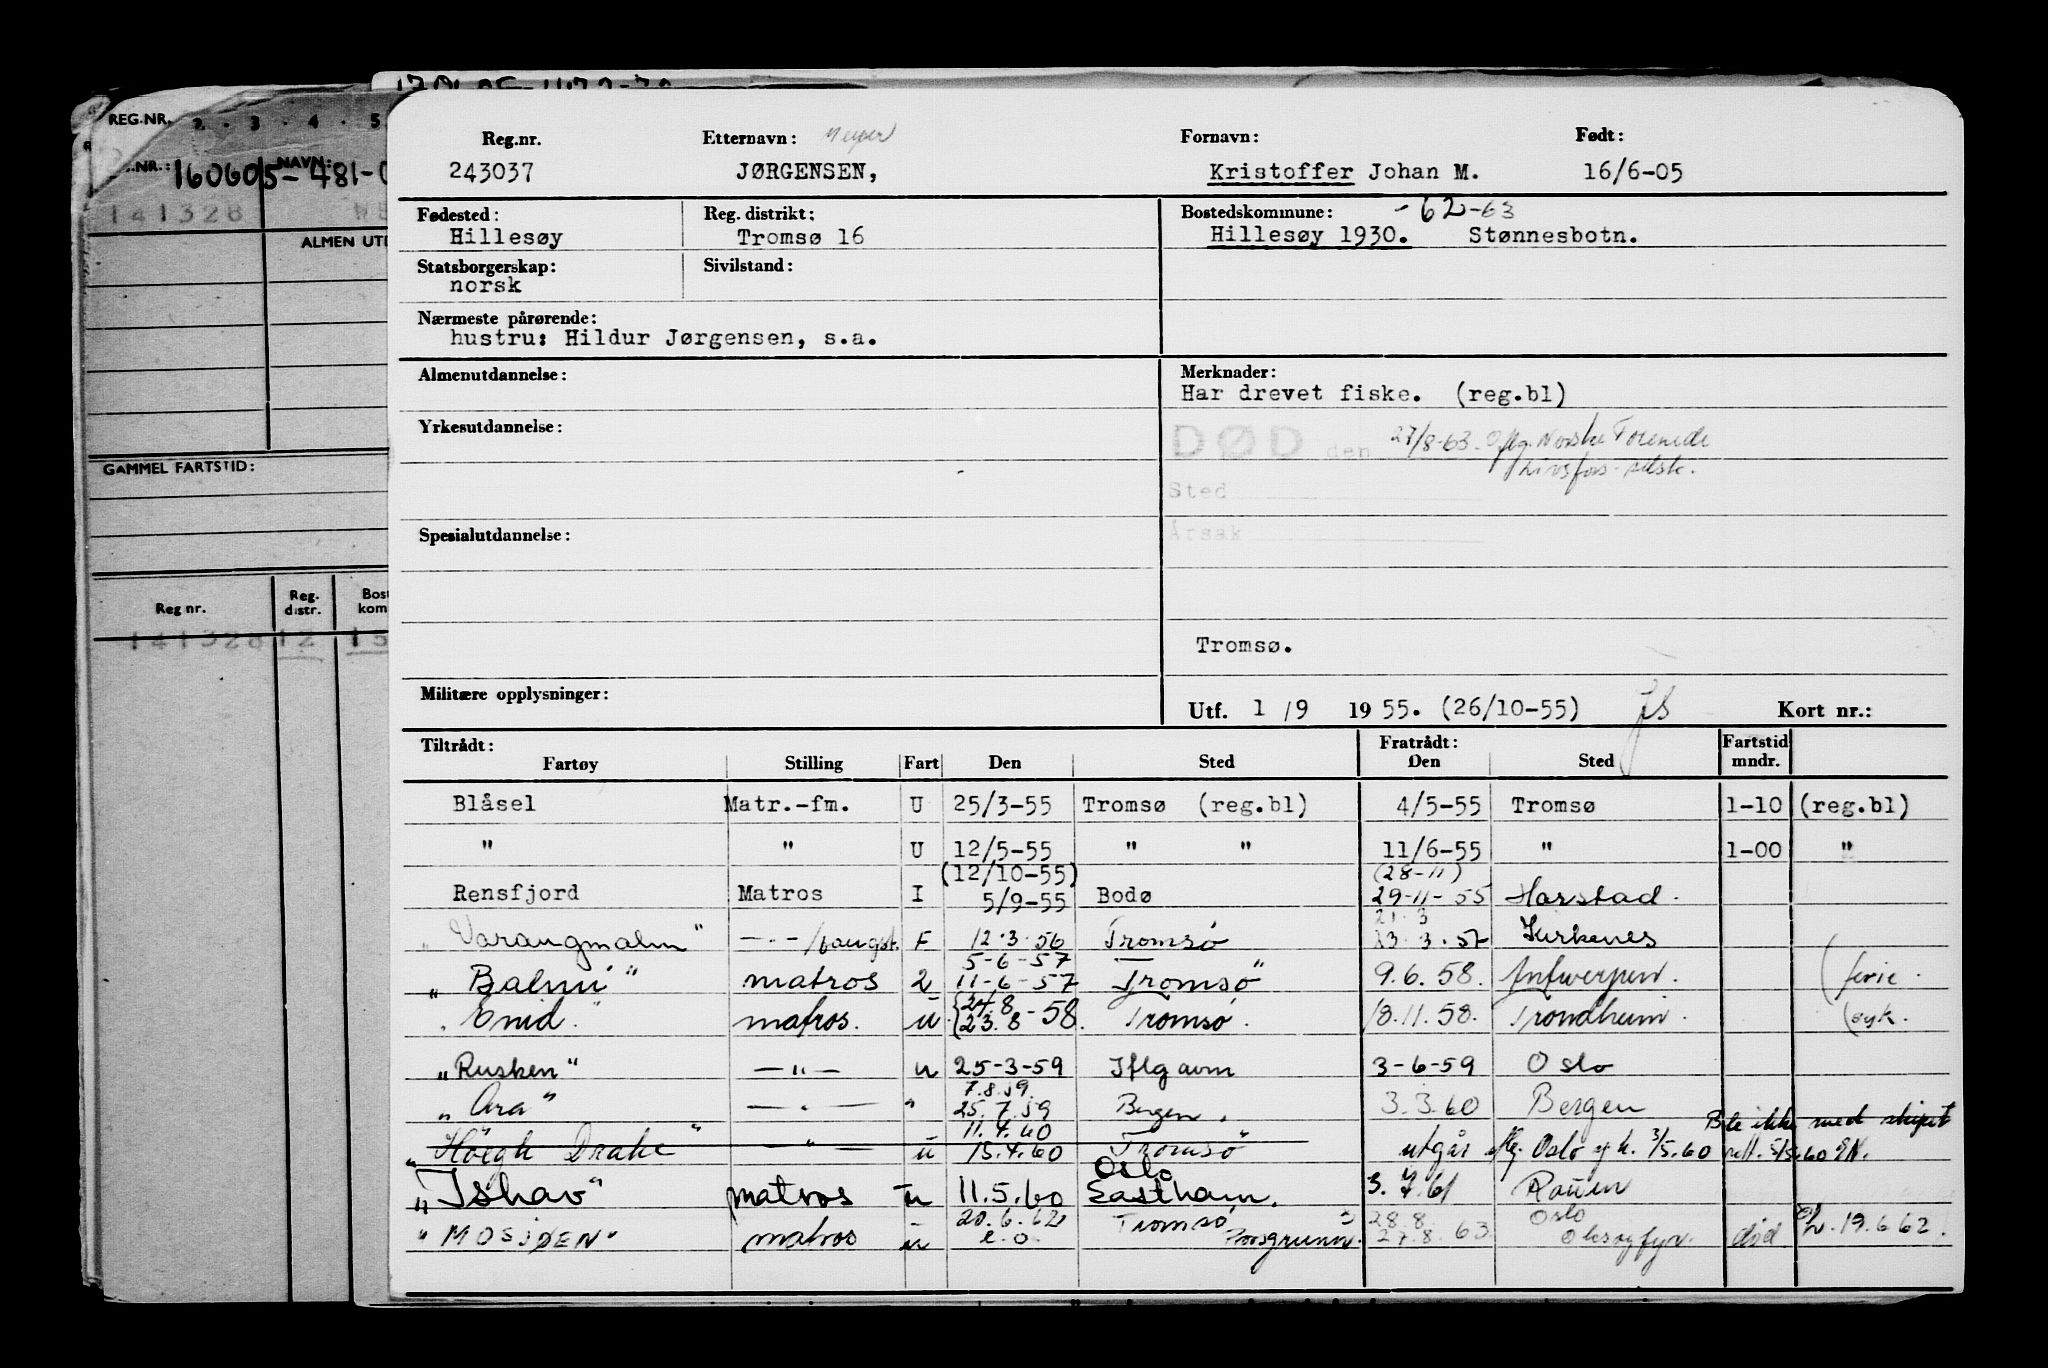 REG.NR. 2 · 3 · 4 · 5
NR.: 160605- NAVN: 481-0
141328
ALMEN UTD
GAMMEL FARTSTID:
Reg nr. Reg. distr. Bost kom
141328 12 15
Reg.nr. Etternavn: Meyer Fornavn: Født:
243037 JØRGENSEN, Kristoffer Johan M. 16/6-05
Fødested: Reg. distrikt: Bostedskommune: -62-63
Hillesøy Tromsø 16 Hillesøy 1930. Stønnesbotn.
Statsborgerskap: Sivilstand:
norsk
Nærmeste pårørende:
hustru: Hildur Jørgensen, s.a.
Almenutdannelse: Merknader:
Har drevet fiske. (reg.bl)
Yrkesutdannelse:
DØD den 27/8-63. Iflg. Norske Forenede
Livsfors. selsk.
Sted
Årsak
Spesialutdannelse:
Tromsø.
Militære opplysninger: Utf. 1/9 1955. (26/10-55) Kort nr.:
Tiltrådt: Fratrådt: Fartstid
Fartøy Stilling Fart Den Sted Den Sted mndr.
Blåsel Matr.-fm. U 25/3-55 Tromsø (reg.bl) 4/5-55 Tromsø 1-10 (reg.bl)
" " U 12/5-55 " " 11/6-55 " 1-00 "
(12/10-55) (28-11)
Rensfjord Matros I 5/9-55 Bodø 29-11-55 Harstad.
21.3
"Varangmalm" -.-/fangst. F 12.3.56 Tromsø 13.3.57 Kirkenes
5-6-57
"Balmi" matros 11-6-57 Tromsø 9.6.58. Antwerpen. (ferie.
24.8
"Enid" matros. u. 23.8-58. Tromsø. 18.11.58. Trondheim. (syk.
"Rusken" —"— u 25-3-59 Iflg avm 3-6-59 Oslo
7.8.59.
"Ara" —"— " 25.7.59 Bergen. 3.3.60 Bergen
11.4.60 Ble ikke med skipet
"Höegh Drake" —"— u 15.4.60 Tromsø utgår iflg. Oslo s.k. 3/5.60
Oslo
"Ishav" matros u 11.5.60 Eastham. 3.7.61 Rouen
20.6.62 Tromsø 28.8. Oslo
"MOSJØEN" matros u Porsgrunn. 27.8.63 død 19.6.62.